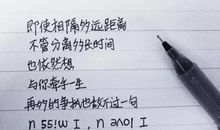 即使相隔多远距离
不管分离多长时间
也依然想
与你牵手一生
再多的争执也敌不过一句
n 55!W I , n ǝvol I